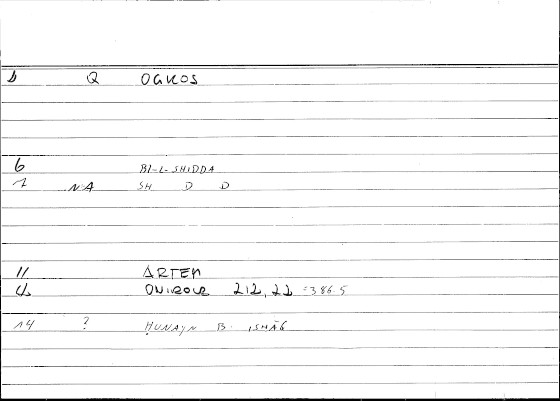 Q OGKOS
6 BI-L-SHIDDA
1 NA SH D D
11 ARTEM
ONIROCR 212, 22 =386.5
14 ? ḤUNAYN B. ISḤĀQ